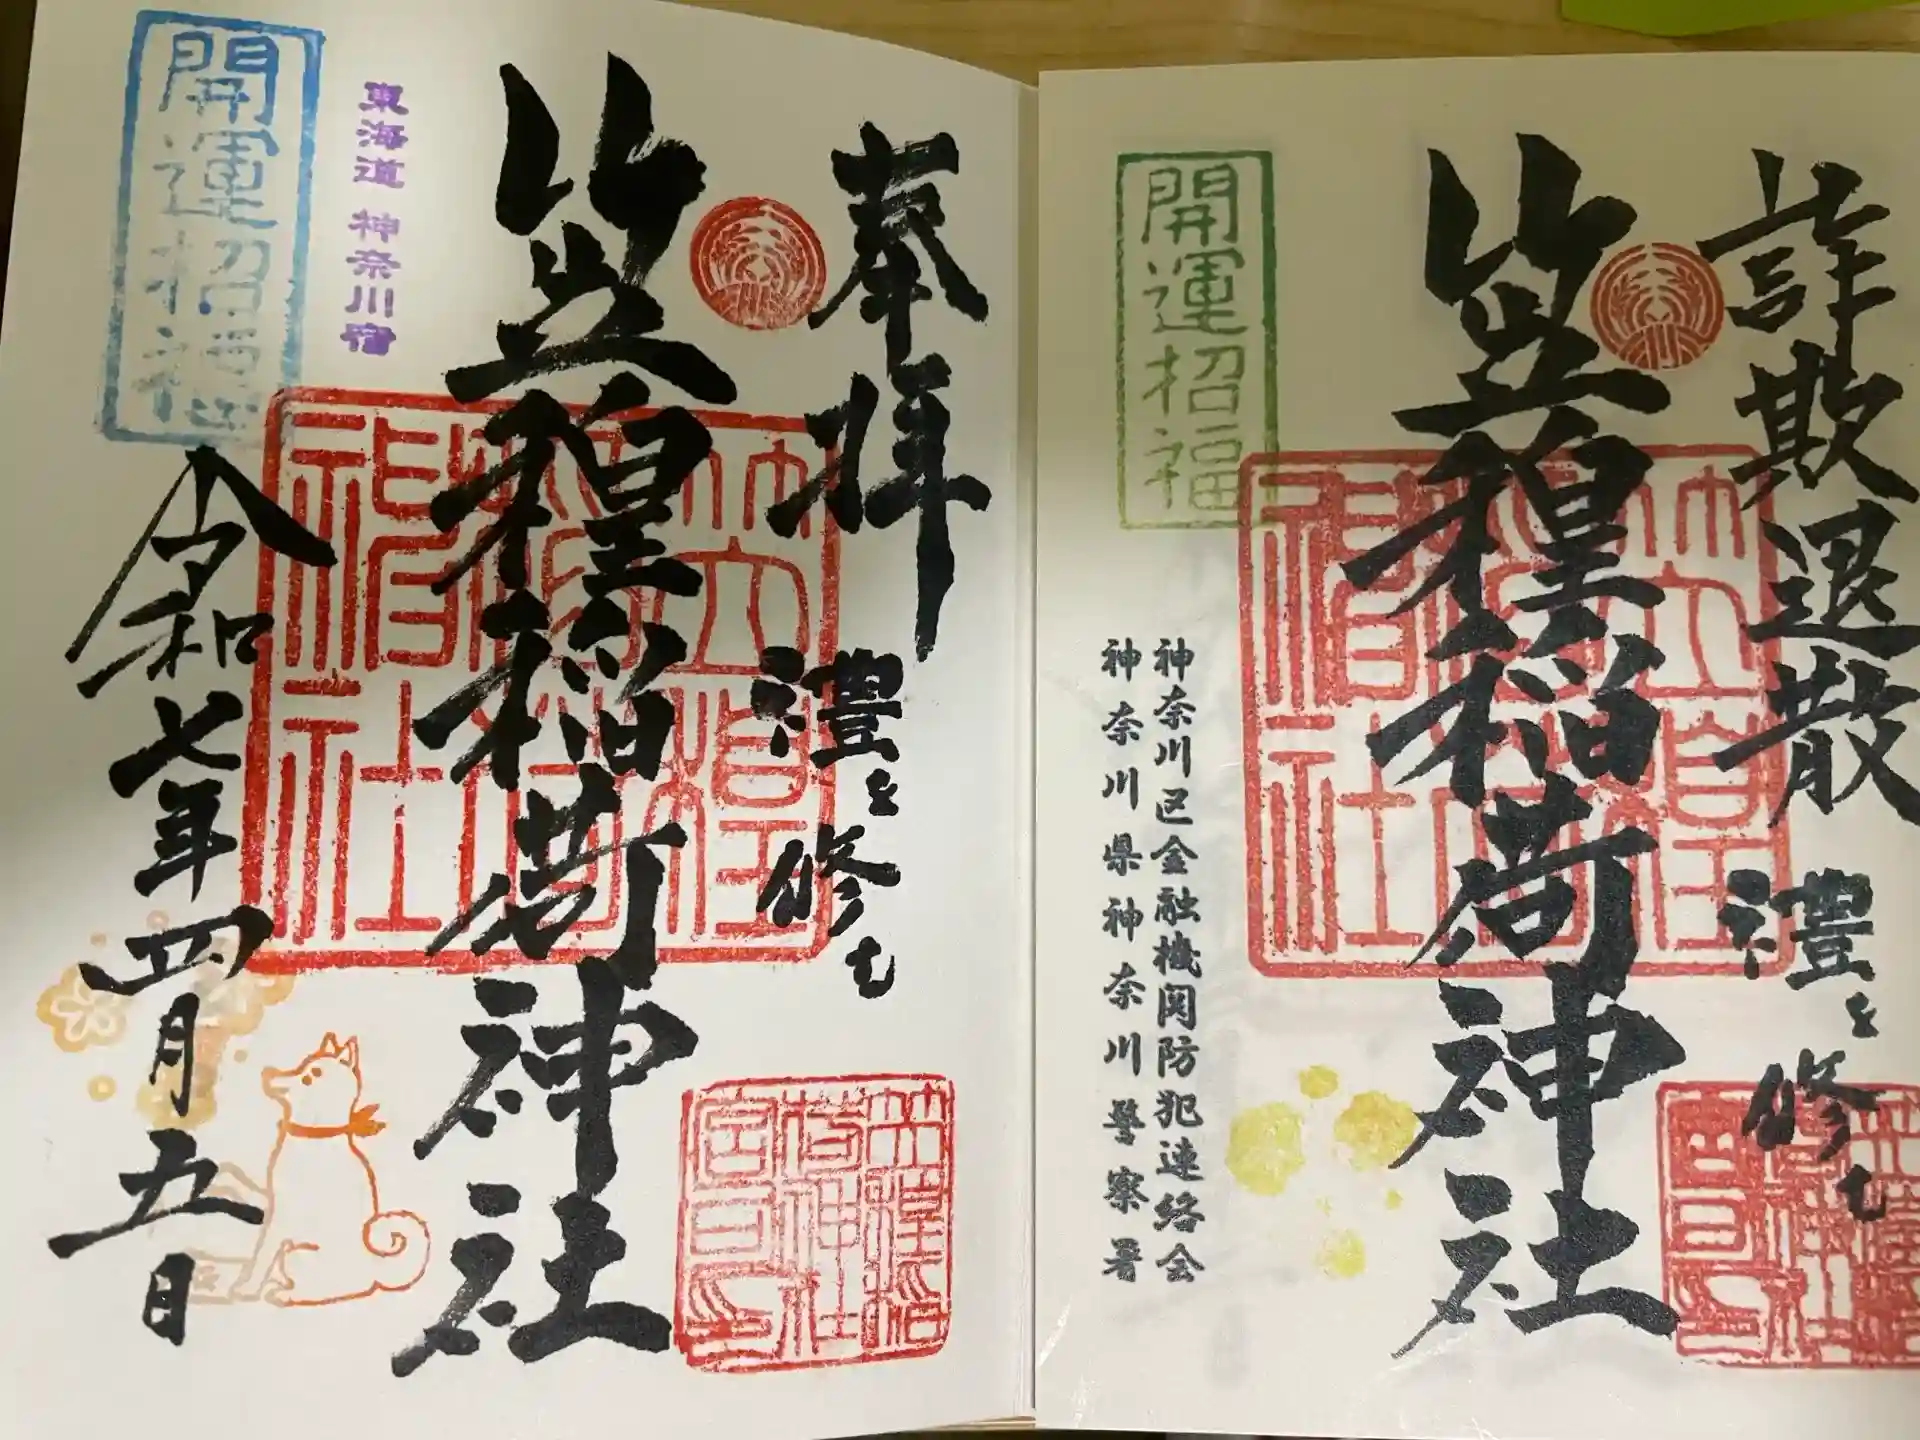 詐欺退散
禮を修む
笠䅣稲荷神社
開運招福
神奈川区金融機関防犯連絡会
神奈川県神奈川警察署
笠䅣
稲荷
神社
奉拝
禮を修む
笠䅣稲荷神社
東海道 神奈川宿
開運招福
令和七年四月五日
笠䅣
稲荷
神社
笠䅣稲
荷神社
宮司印